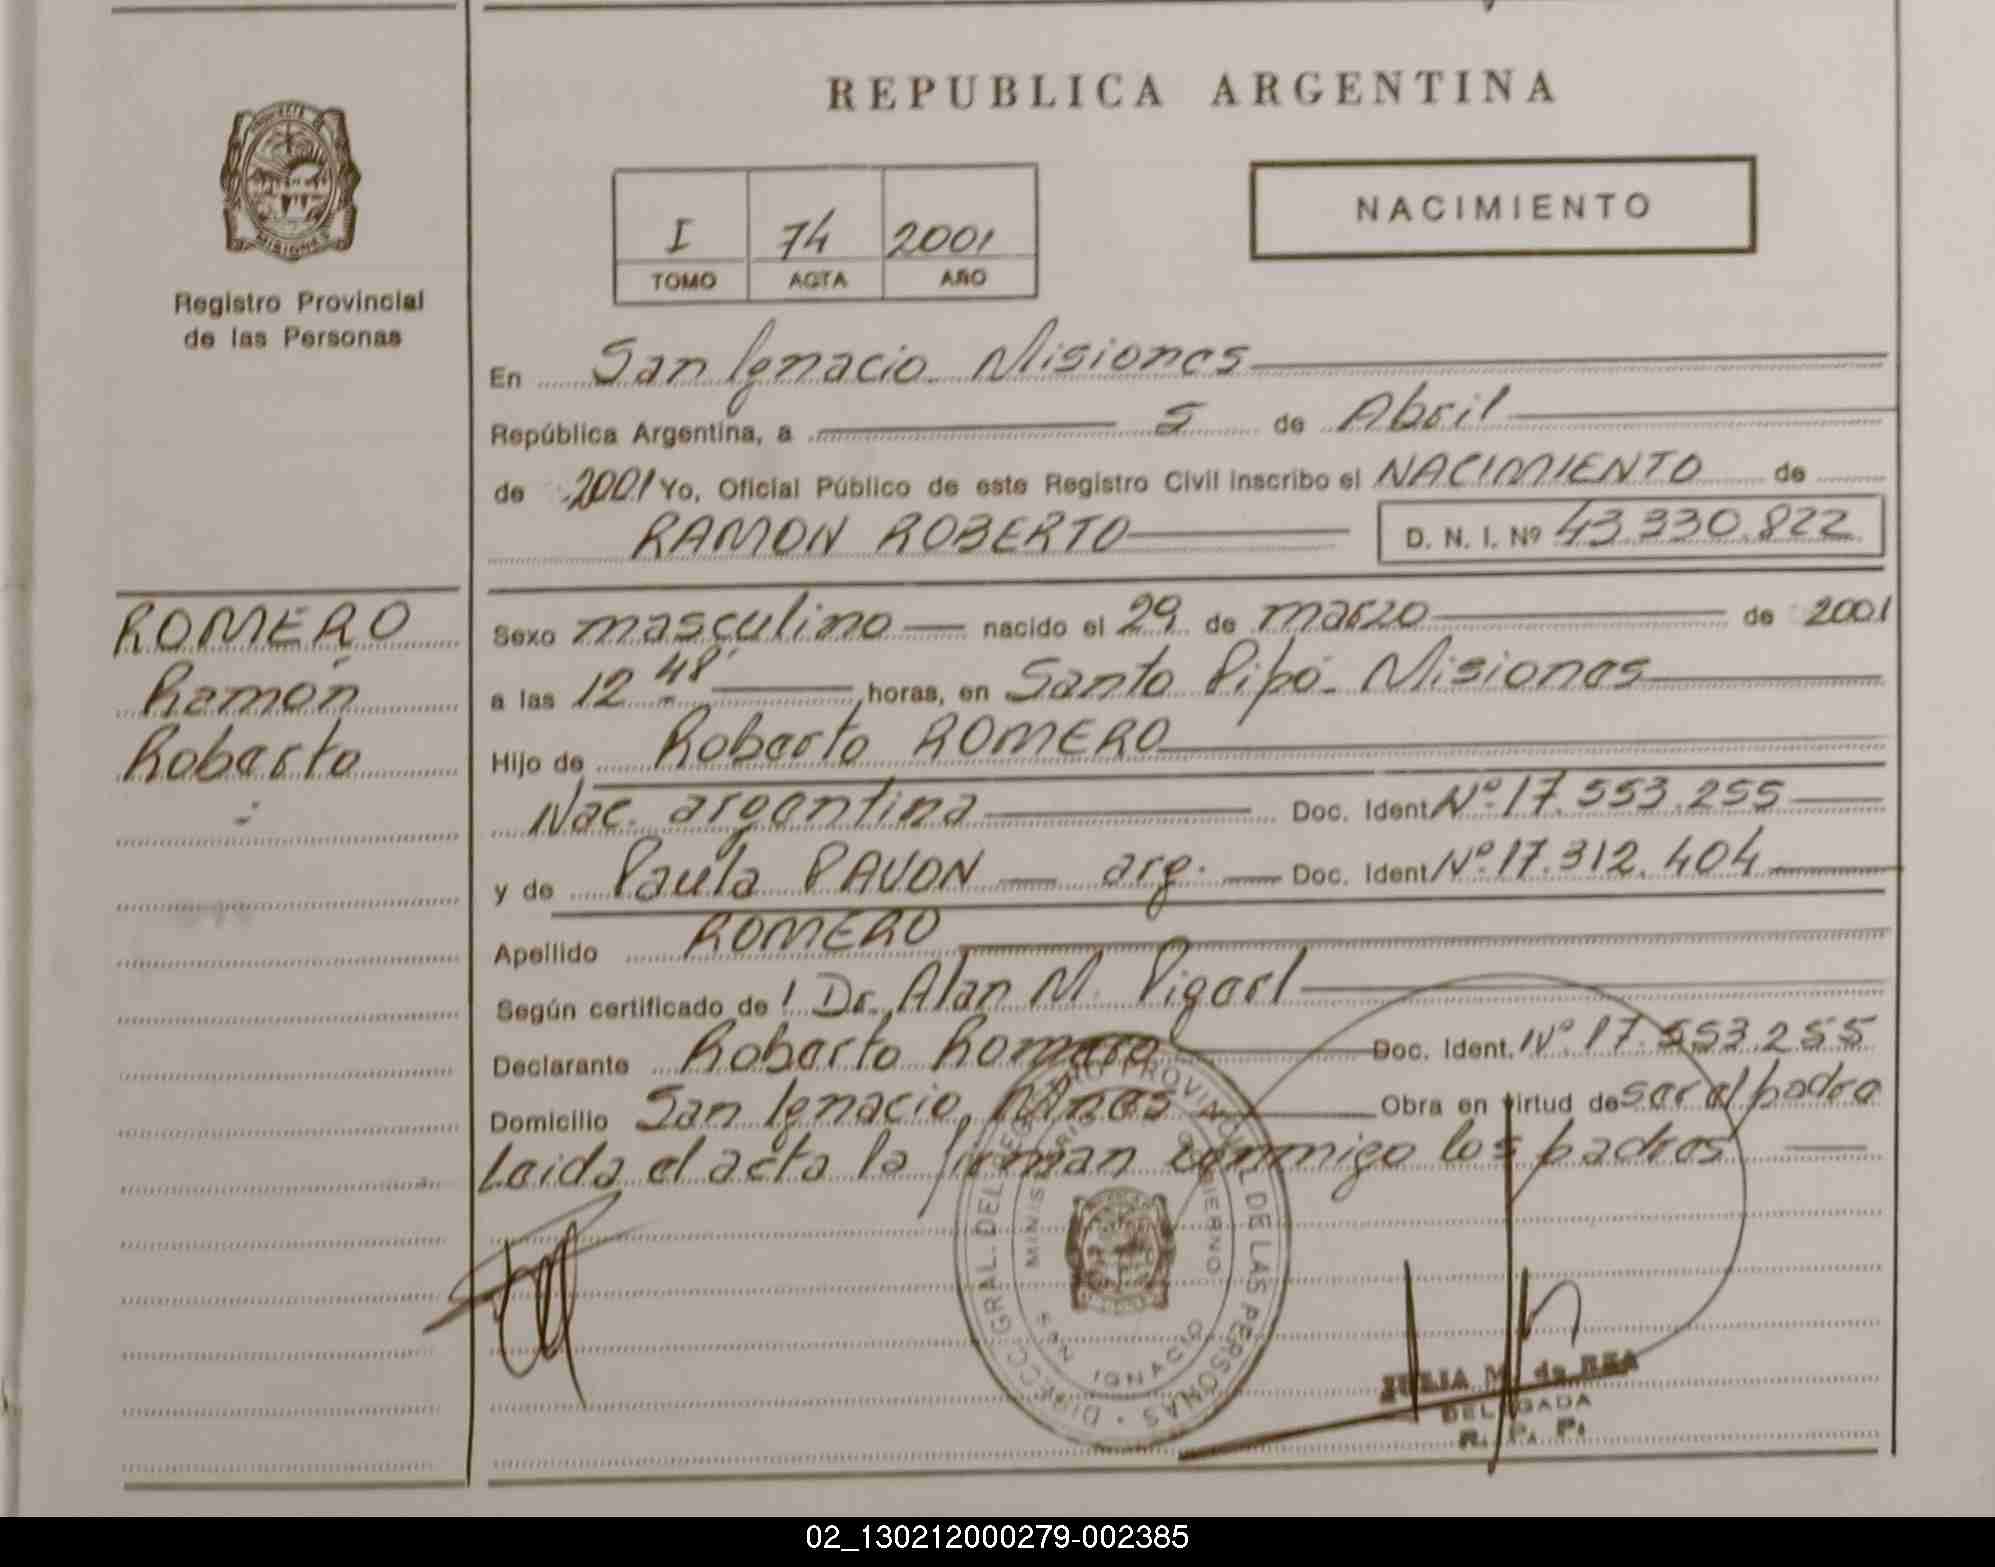 REPUBLICA ARGENTINA
NACIMIENTO
I 74 2001
TOMO ACTA AÑO
MISIONES
Registro Provincial
de las Personas
En San Ignacio Misiones
República Argentina, a 5 de Abril
de 2001 Yo, Oficial Público de este Registro Civil inscribo el NACIMIENTO de
RAMON ROBERTO D. N. I. Nº 43.330.822
ROMERO
Ramón
Roberto
Sexo masculino nacido el 29 de marzo de 2001
a las 12 48' horas, en Santo Pipó Misiones
Hijo de Roberto ROMERO
Nac. argentina Doc. Ident Nº 17.553.255
y de Paula PAVON arg. Doc. Ident Nº 17.312.404
Apellido ROMERO
Según certificado de Dr. Alan M.
Declarante Roberto Romero Doc. Ident. Nº 17.553.255
Domicilio San Ignacio, Mnes Obra en virtud de ser el padre
Leida el acta la firman conmigo los padres
DIRECC. GRAL. DEL REGISTRO PROVINCIAL DE LAS PERSONAS
MINISTERIO GOBIERNO
SAN IGNACIO
JULIA M. de
DELEGADA
R. P. P.
02_130212000279-002385